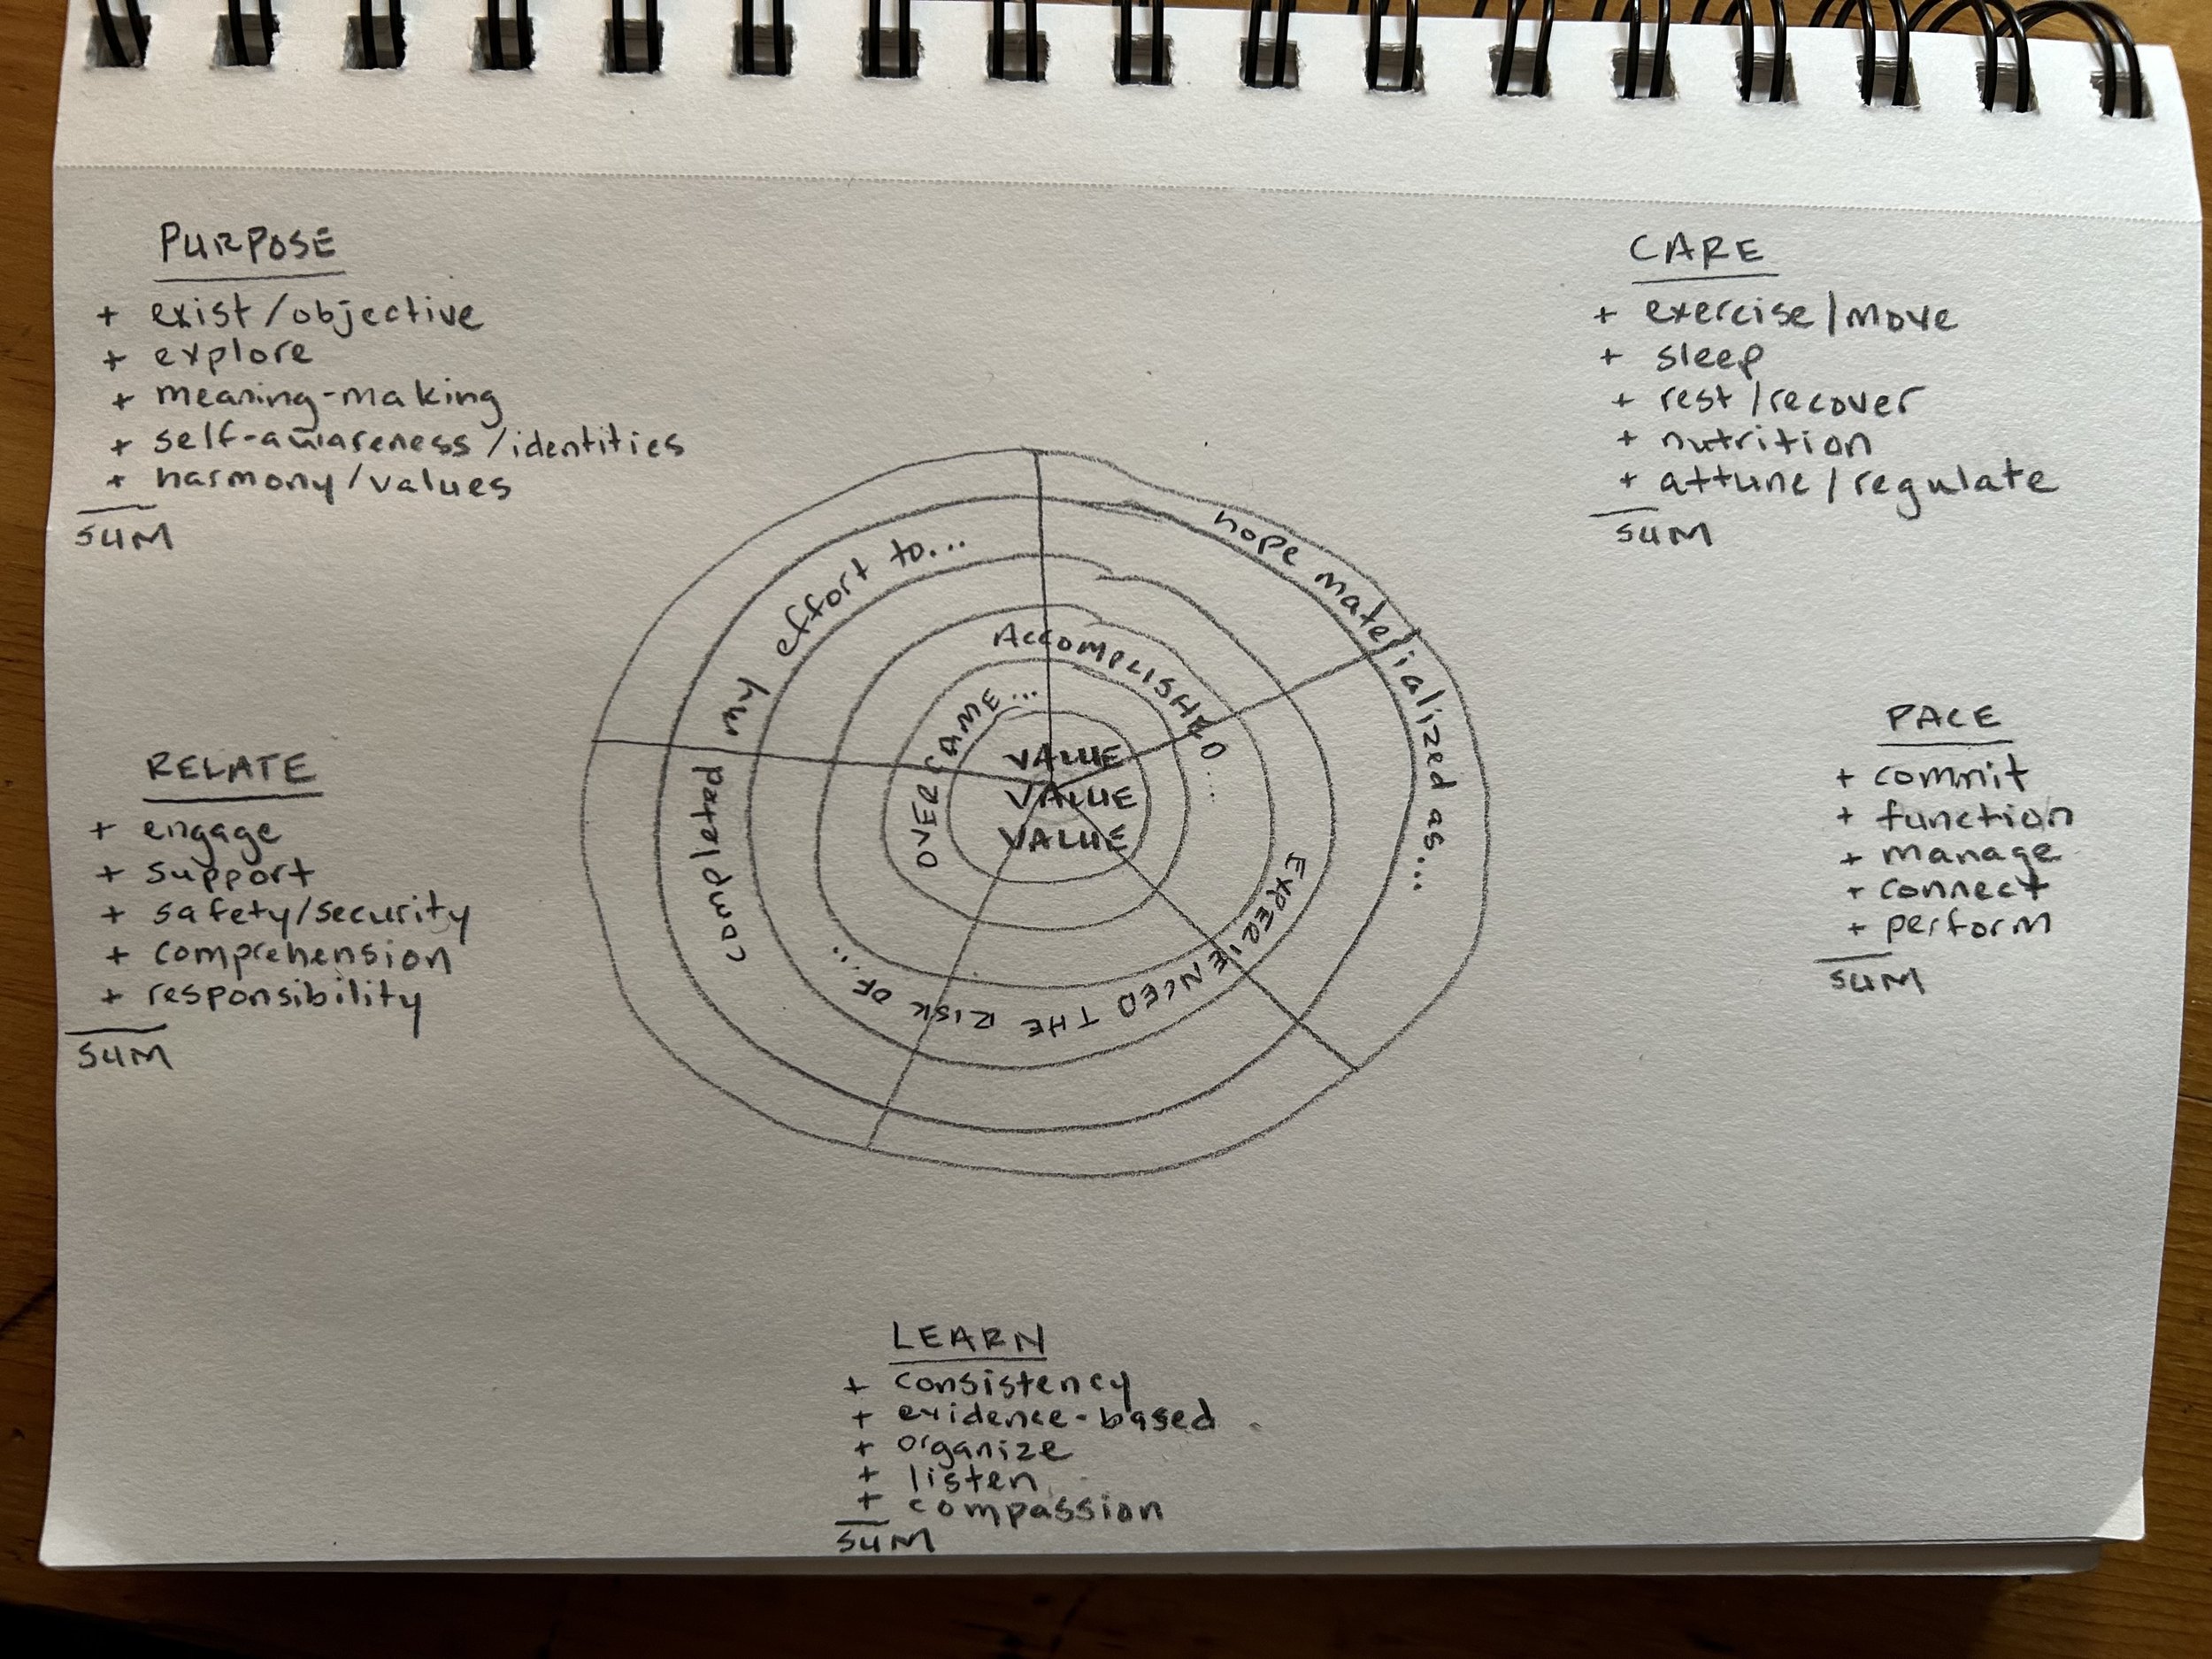 PURPOSE
+ exist/objective
+ explore
+ meaning-making
+ self-awareness/identities
+ harmony/values
SUM
CARE
+ exercise/move
+ sleep
+ rest/recover
+ nutrition
+ attune/regulate
SUM
RELATE
+ engage
+ support
+ safety/security
+ comprehension
+ responsibility
SUM
hope materialized as...
completed my effort to...
EXPERIENCED THE RISK OF...
ACCOMPLISHED....
OVERCAME...
VALUE
VALUE
VALUE
PACE
+ commit
+ function
+ manage
+ connect
+ perform
SUM
LEARN
+ consistency
+ evidence-based
+ organize
+ listen
+ compassion
SUM